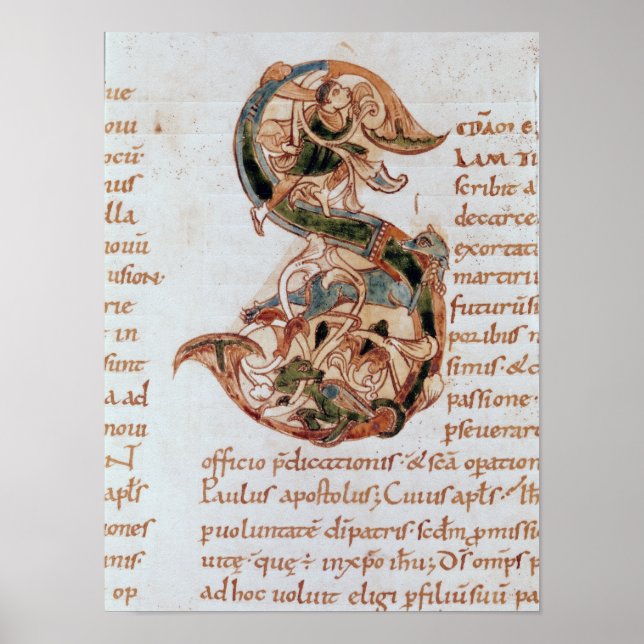 ue
oui
ocū:
nus
lla
nouū
usion·
rie
in
sunt
a ad
noui
N
apłs
iones
op
S
IAM TI
scribit a
decarce
exortati
martiriū
futurūs
poribus n
simis · & c
passione ·
pseuerar
officio p̄dicationis · & scā operation
Paulus apostolus; Cuius apłs · ih
puoluntatē dīpatris · scdm̄ pmissi
uitę · quę ÷ inxpō ihū; Ds̄ omp̄s p
ad hoc uoluit eligi pfiliūsuū pa